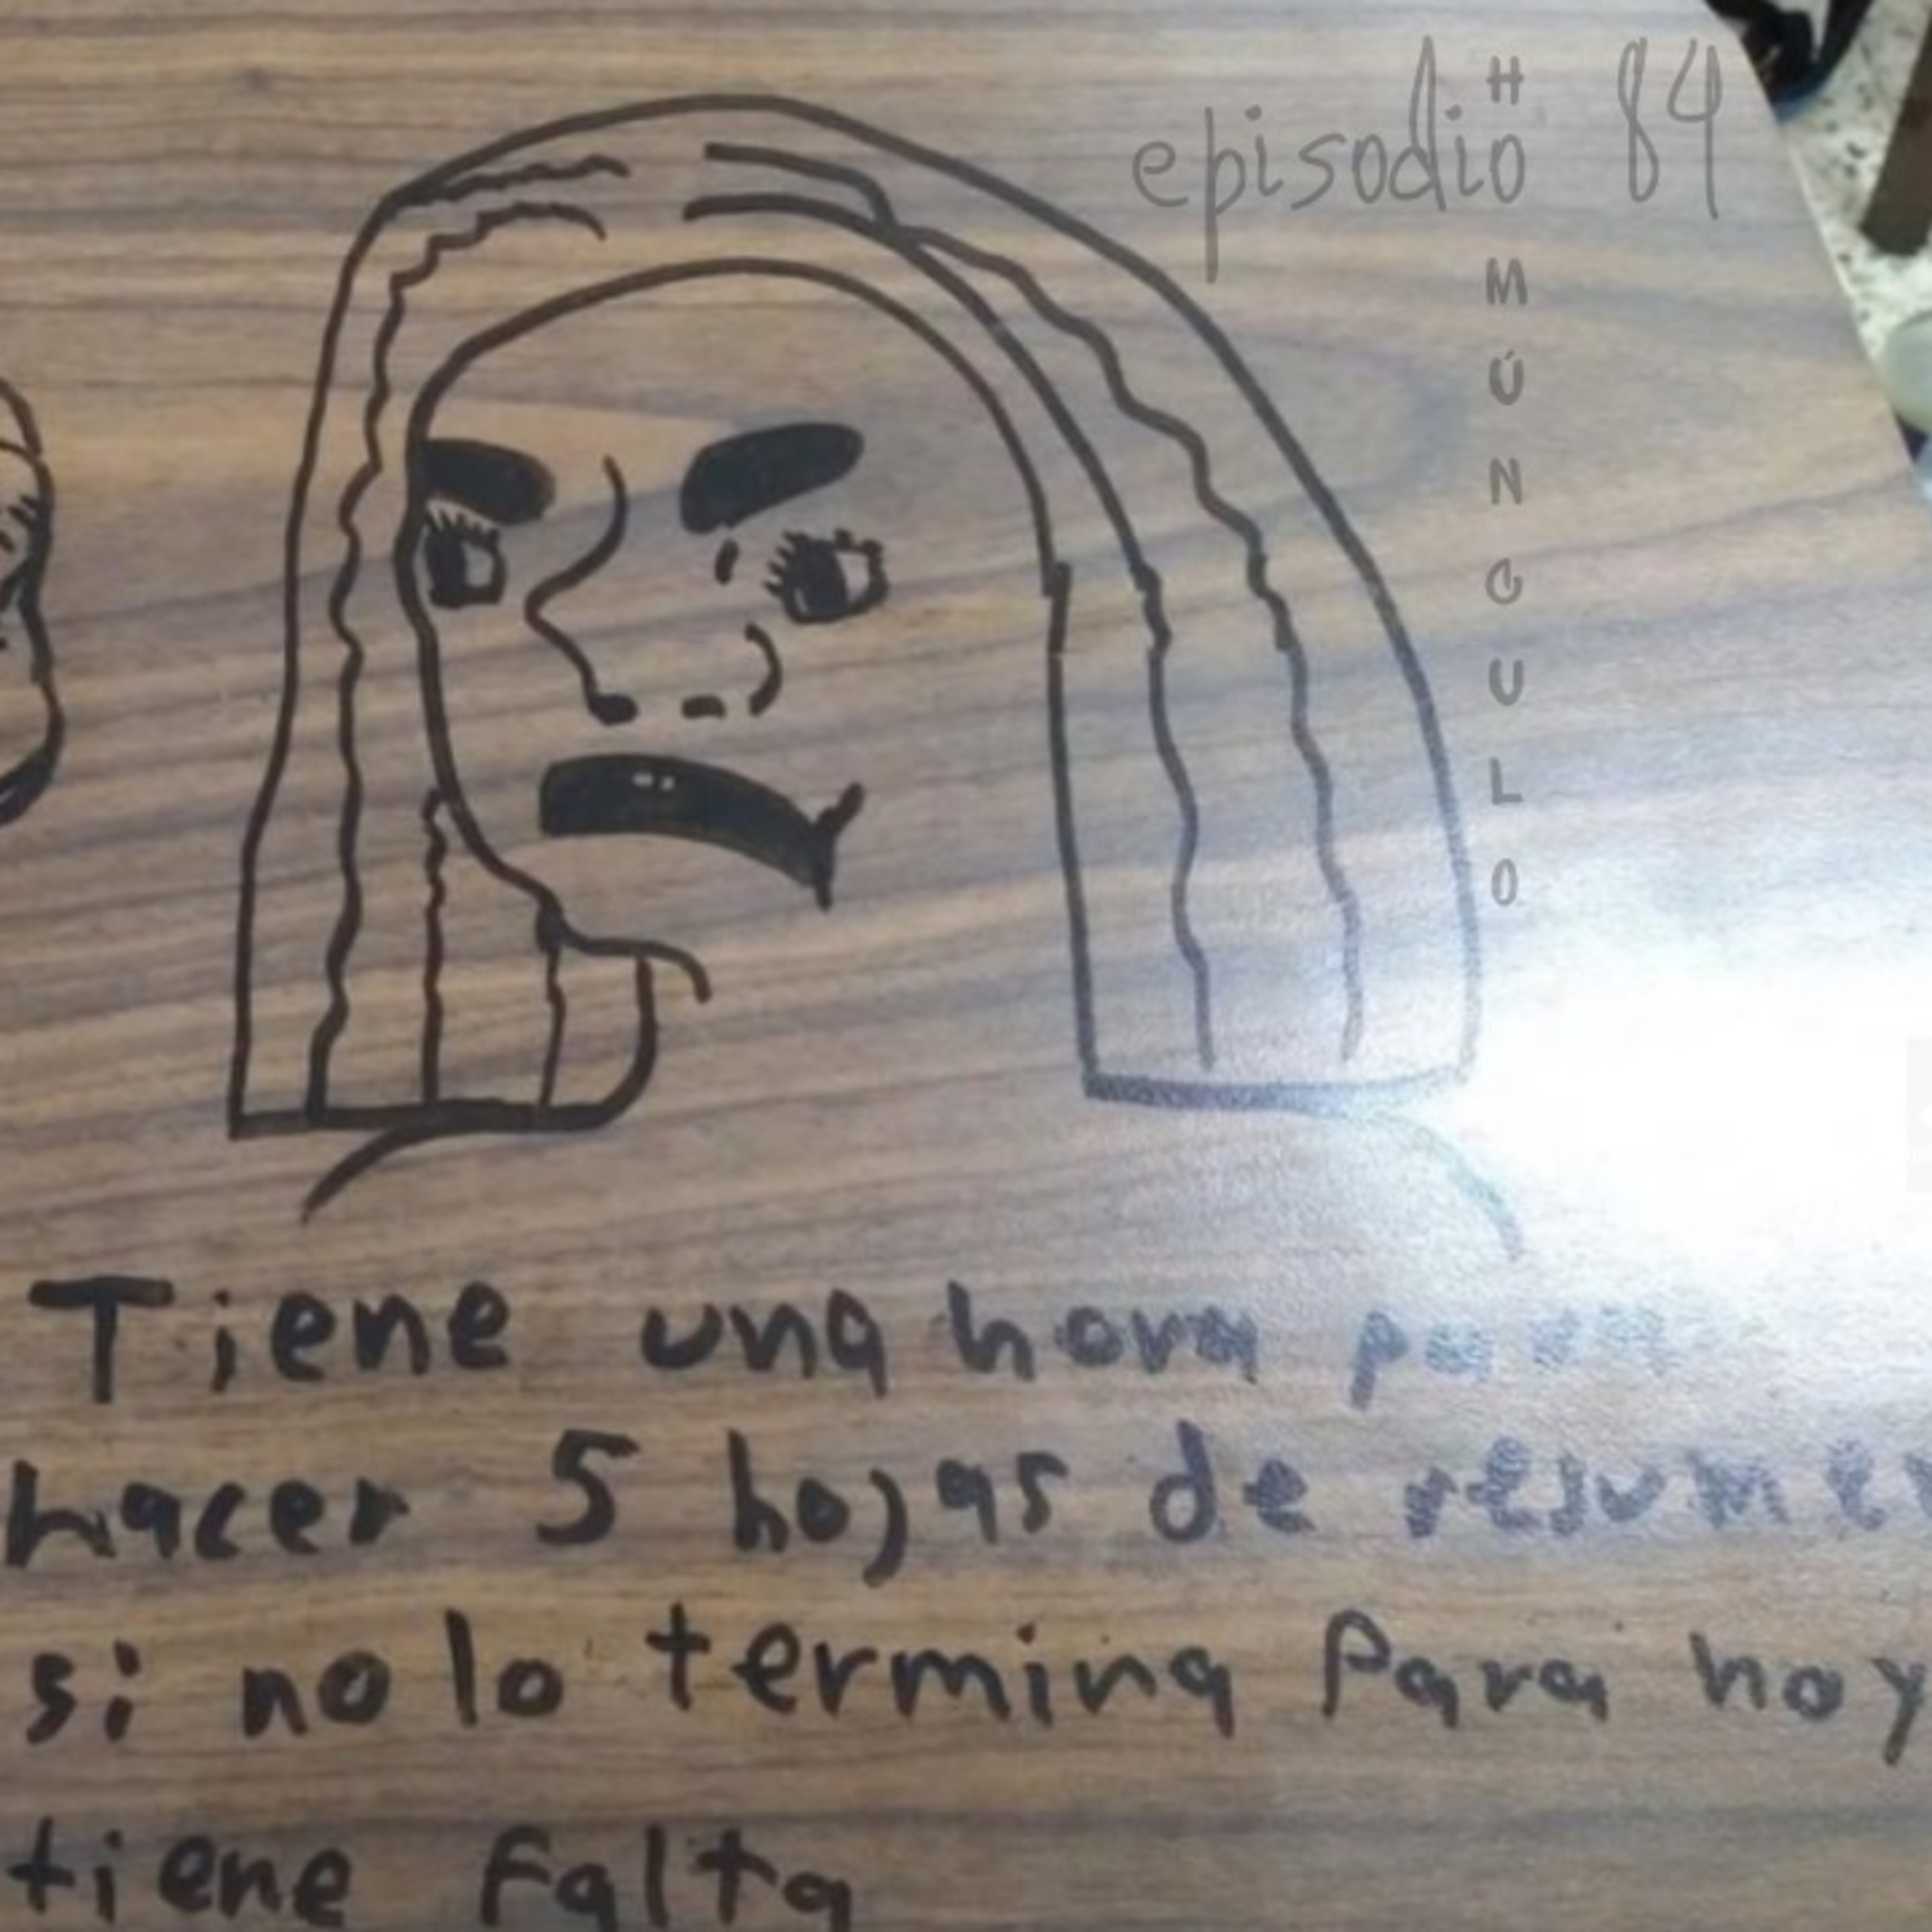 episodio 84
HMÚNCULO
Tiene una hora para
hacer 5 hojas de resumen
si no lo termina Para hoy
tiene Falta